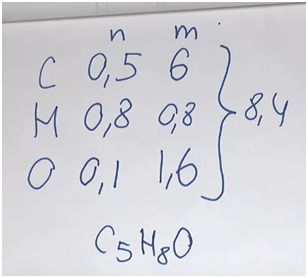 n m
C 0,5 6
H 0,8 0,8 } 8,4
O 0,1 1,6
C5H8O